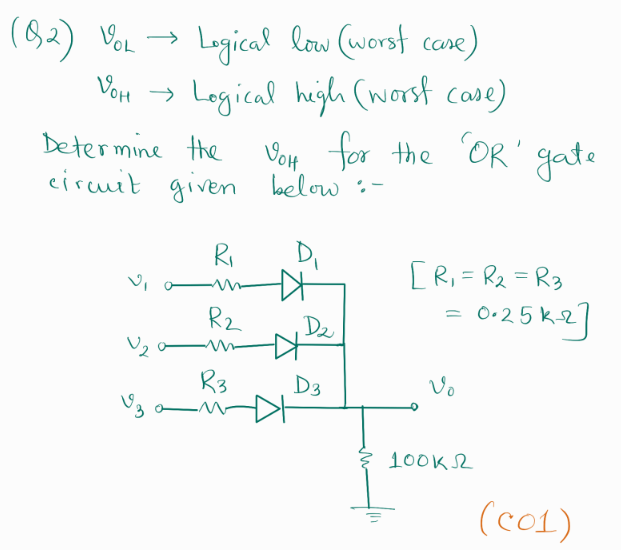 (Q2) VOL → Logical low (worst case)
VOH → Logical high (worst case)
Determine the VOH for the 'OR' gate
circuit given below :-
R1 D1
V1
[R1 = R2 = R3
= 0.25 kΩ]
R2 D2
V2
R3 D3
V3
Vo
100KΩ
(CO1)